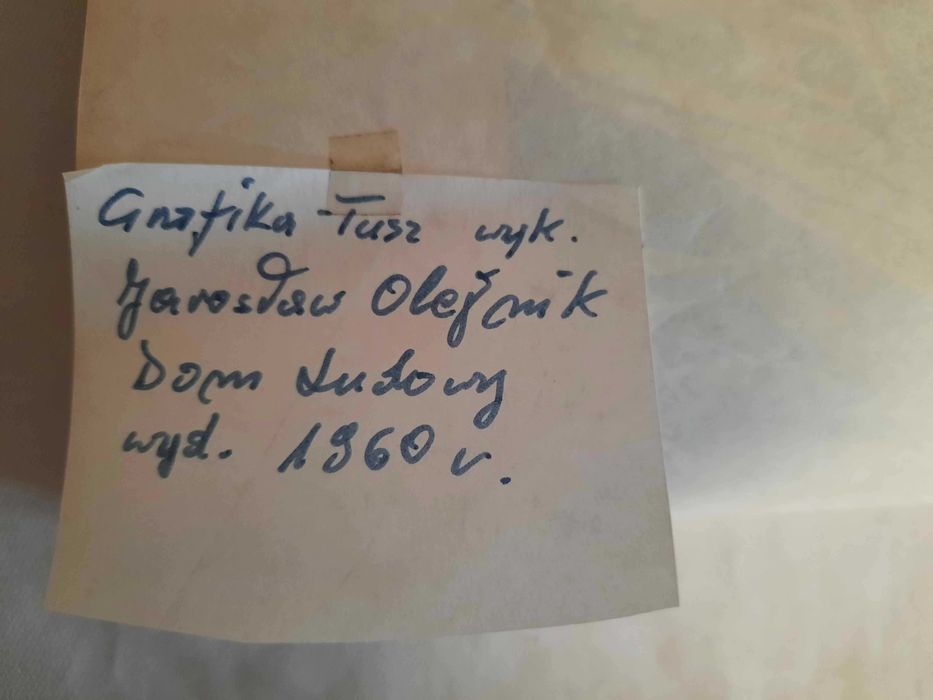 Grafika Tusz wyk.
Jarosław Olejnik
Dom Ludowy
wyd. 1960 r.